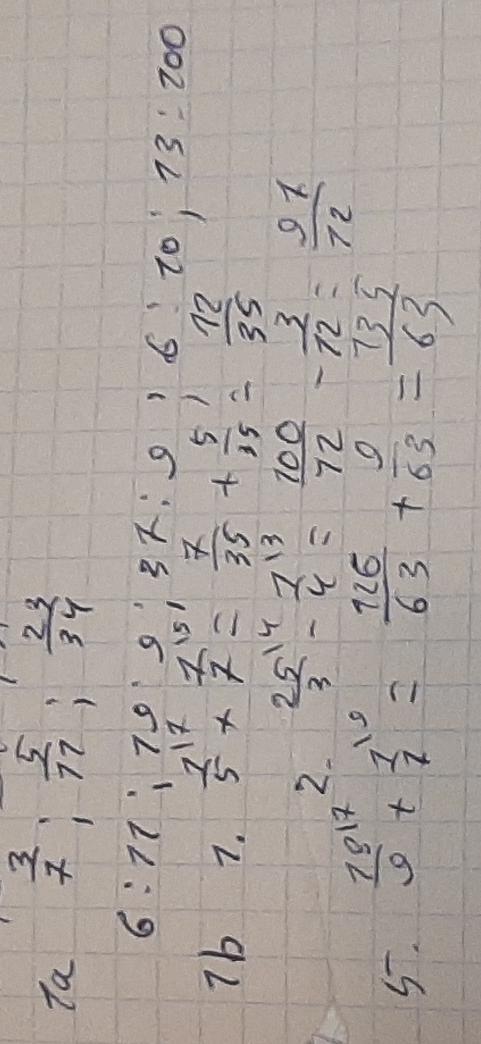 1a 3/7 ; 5/11 ; 23/34
6:11 ; 19:9 ; 37:9 ; 6:10 ; 13:100
1b 1. 1\7/5 + 1\5/7 = 7/35 + 5/35 = 12/35
2. 25\4/3 - 1\3/4 = 100/12 - 3/12 = 97/12
5. 18\7/9 + 1\9/7 = 126/63 + 9/63 = 135/63